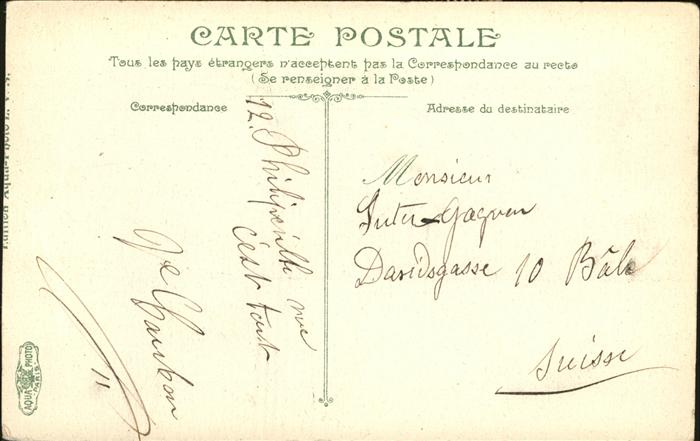 CARTE POSTALE
Tous les pays étrangers n'acceptent pas la Correspondance au recto
(Se renseigner à la Poste)
Correspondance
Adresse du destinataire
12. Philippeville rue
c'est tout
Monsieur
Suter
Davidsgasse 10 Bâle
Suisse
AQUA PHOTO
PARIS